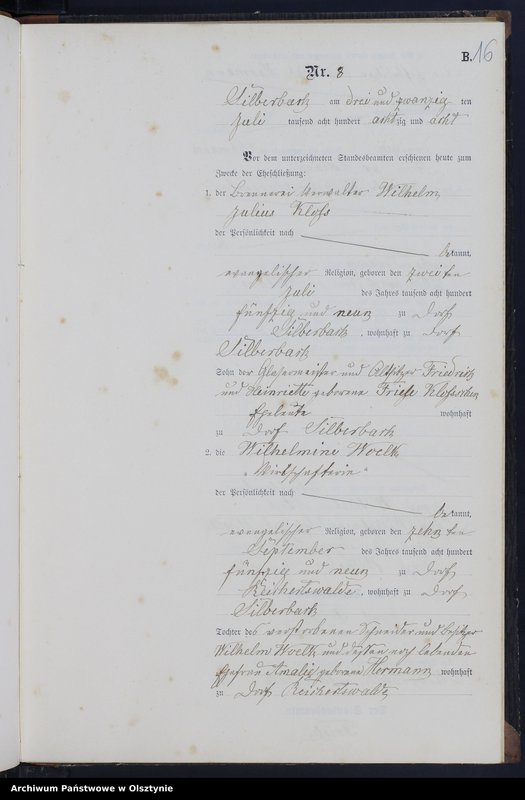 B. 16
Nr. 8
Silberbach am drei und zwanzig ten
Juli tausend acht hundert achtzig und acht
Vor dem unterzeichneten Standesbeamten erschienen heute zum
Zwecke der Eheschließung:
1. der Brennerei Verwalter Wilhelm
Julius Kloss
der Persönlichkeit nach
bekannt,
evangelischer Religion, geboren den zweiten
Juli des Jahres tausend acht hundert
fünfzig und neun zu Dorf
Silberbach, wohnhaft zu Dorf
Silberbach
Sohn der Glasermeister und Altsitzer Friedrich
und Henriette geborene Friese Kloss'schen
Eheleute wohnhaft
zu Dorf Silberbach
2. die Wilhelmine Woelk
„Wirtschafterin“
der Persönlichkeit nach
bekannt,
evangelischer Religion, geboren den zehnten
September des Jahres tausend acht hundert
fünfzig und neun zu Dorf
Reichertswalde, wohnhaft zu Dorf
Silberbach
Tochter des verstorbenen Schneider und Besitzer
Wilhelm Woelk und dessen noch lebenden
Ehefrau Amalie geborene Hermann wohnhaft
zu Dorf Reichertswalde
Archiwum Państwowe w Olsztynie